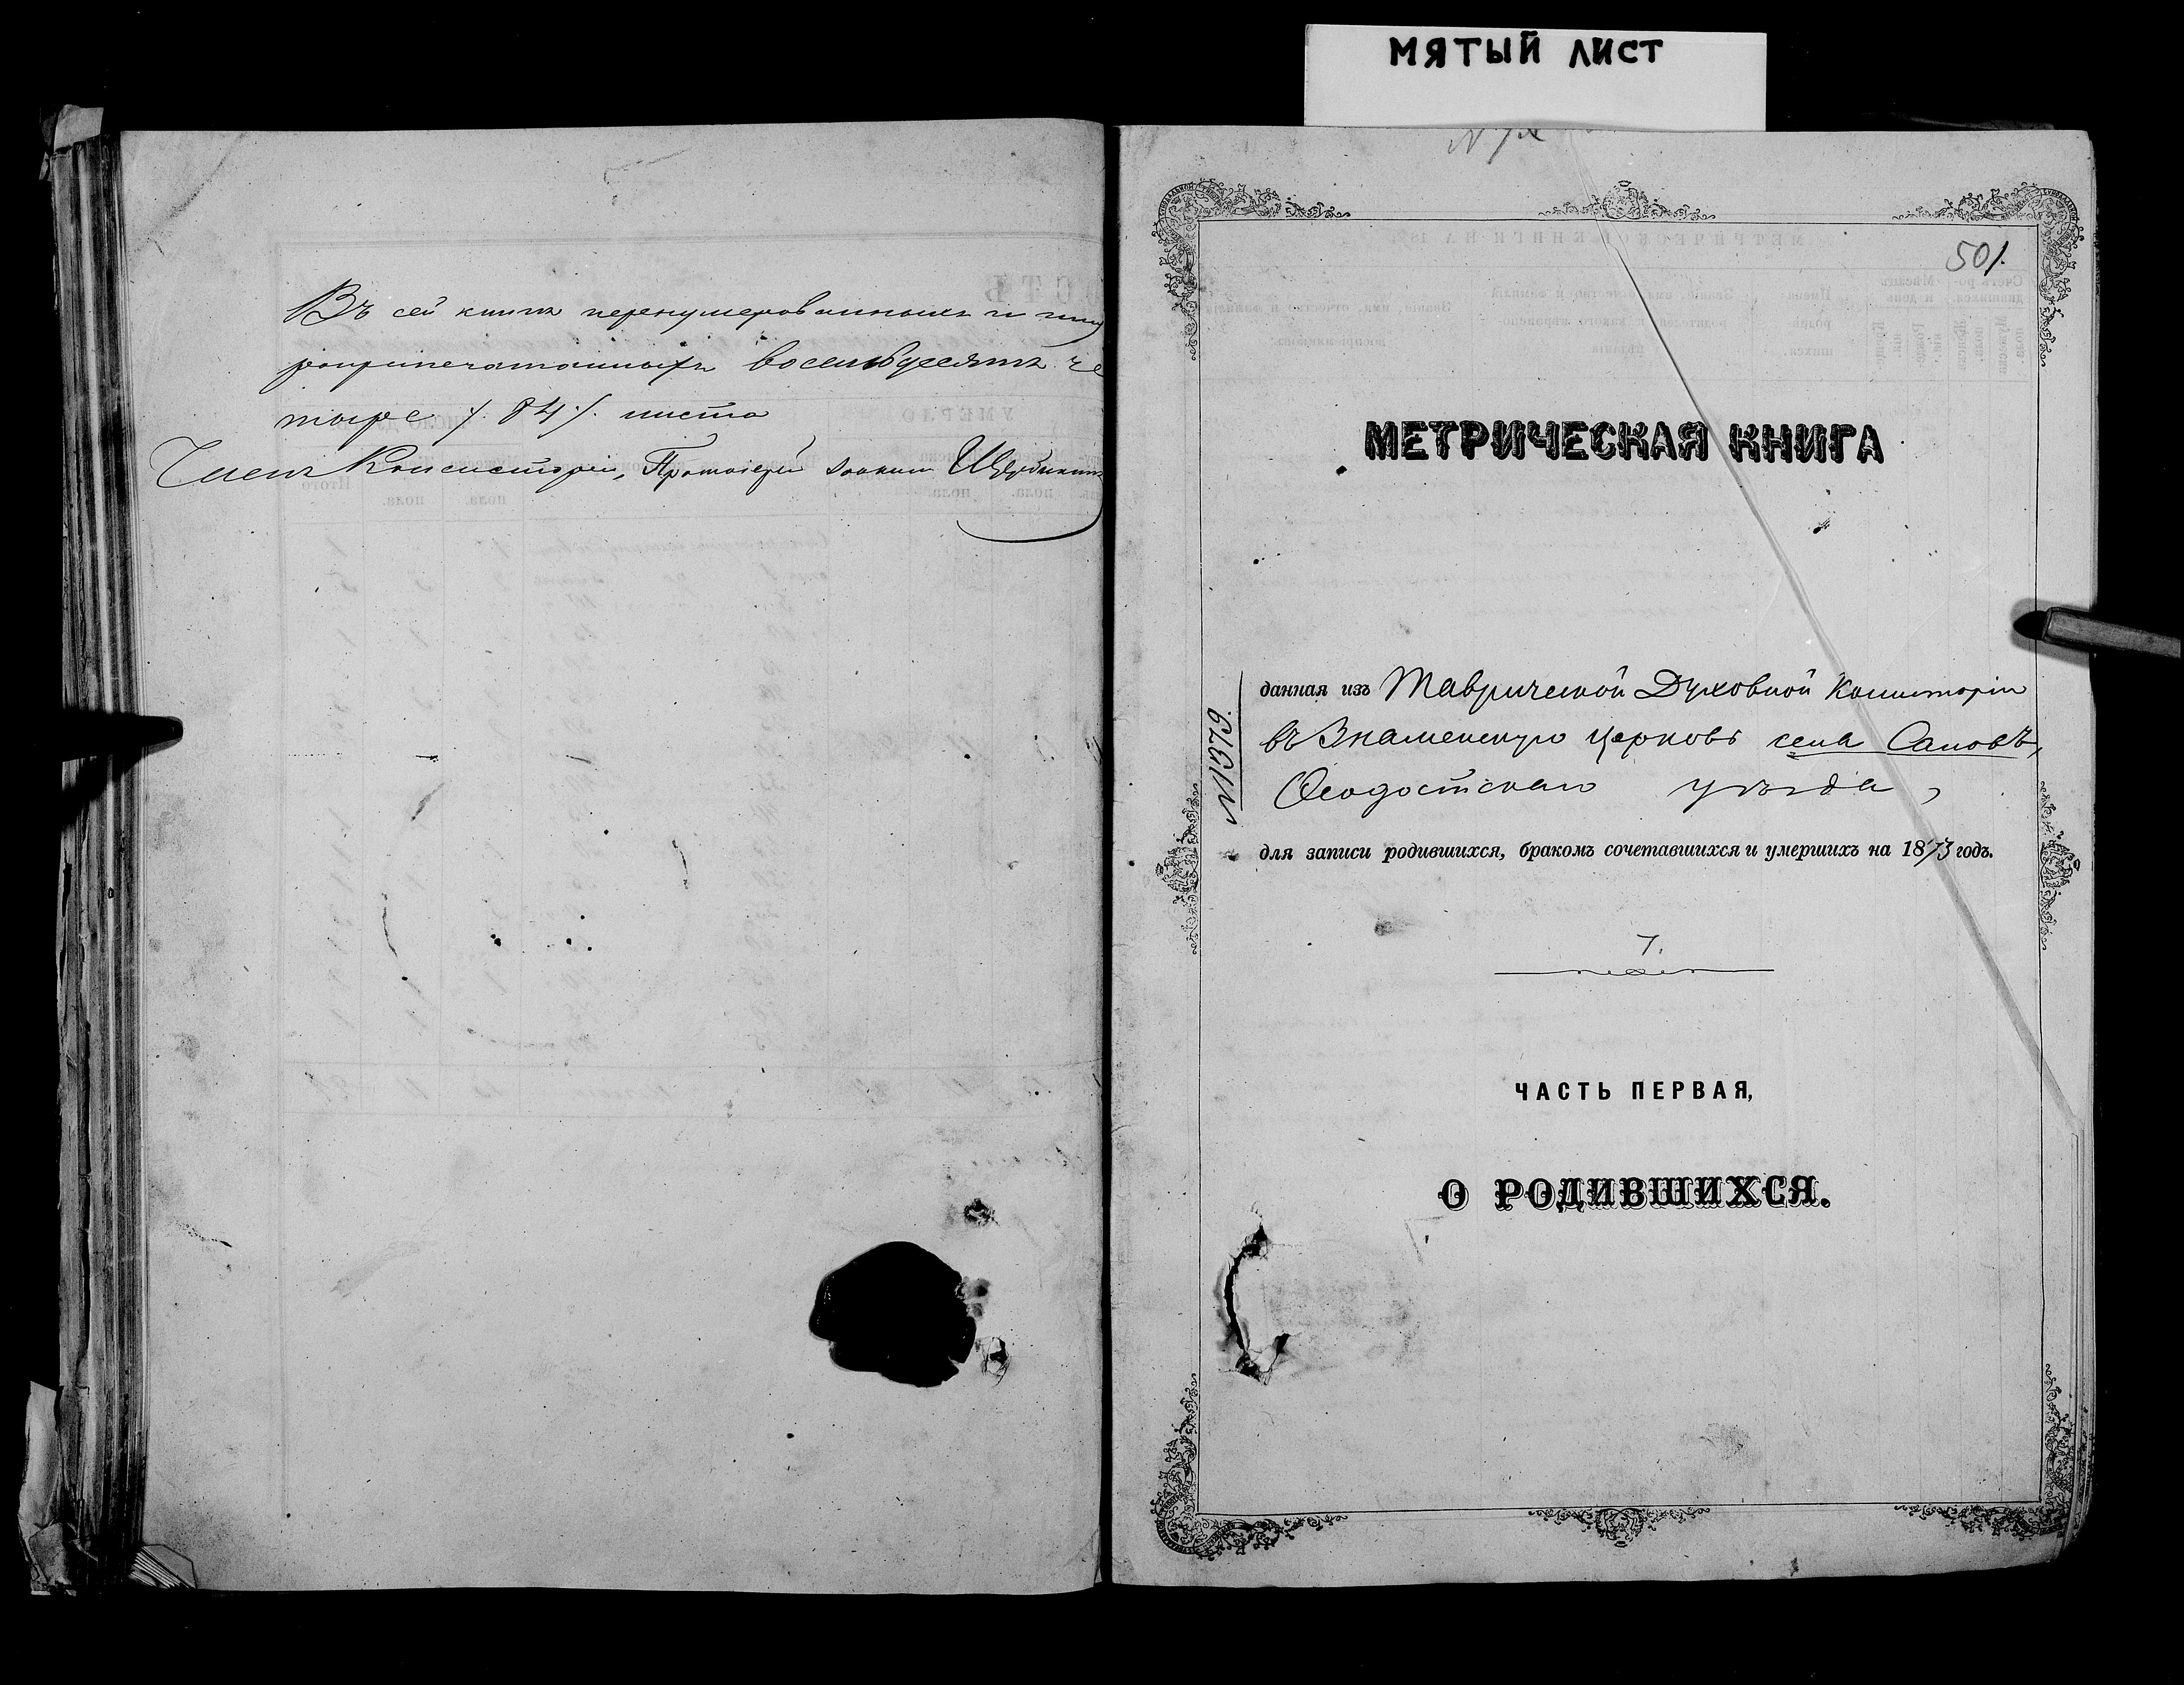 МЯТЫЙ ЛИСТ
Въ сей книгѣ перенумерованныхъ и шну
ропечатанныхъ восемьдесятъ че
тыре /. 84 /. листа
Членъ Консисторіи, Протоіерей
501.
МЕТРИЧЕСКАЯ КНИГА
№1379.
данная изъ Таврической Духовной Консисторіи
въ Знаменскую церковь села Саловъ,
Ѳеодосійскаго уѣзда,
для записи родившихся, бракомъ сочетавшихся и умершихъ на 1873 годъ.
7.
ЧАСТЬ ПЕРВАЯ,
О РОДИВШИХСЯ.